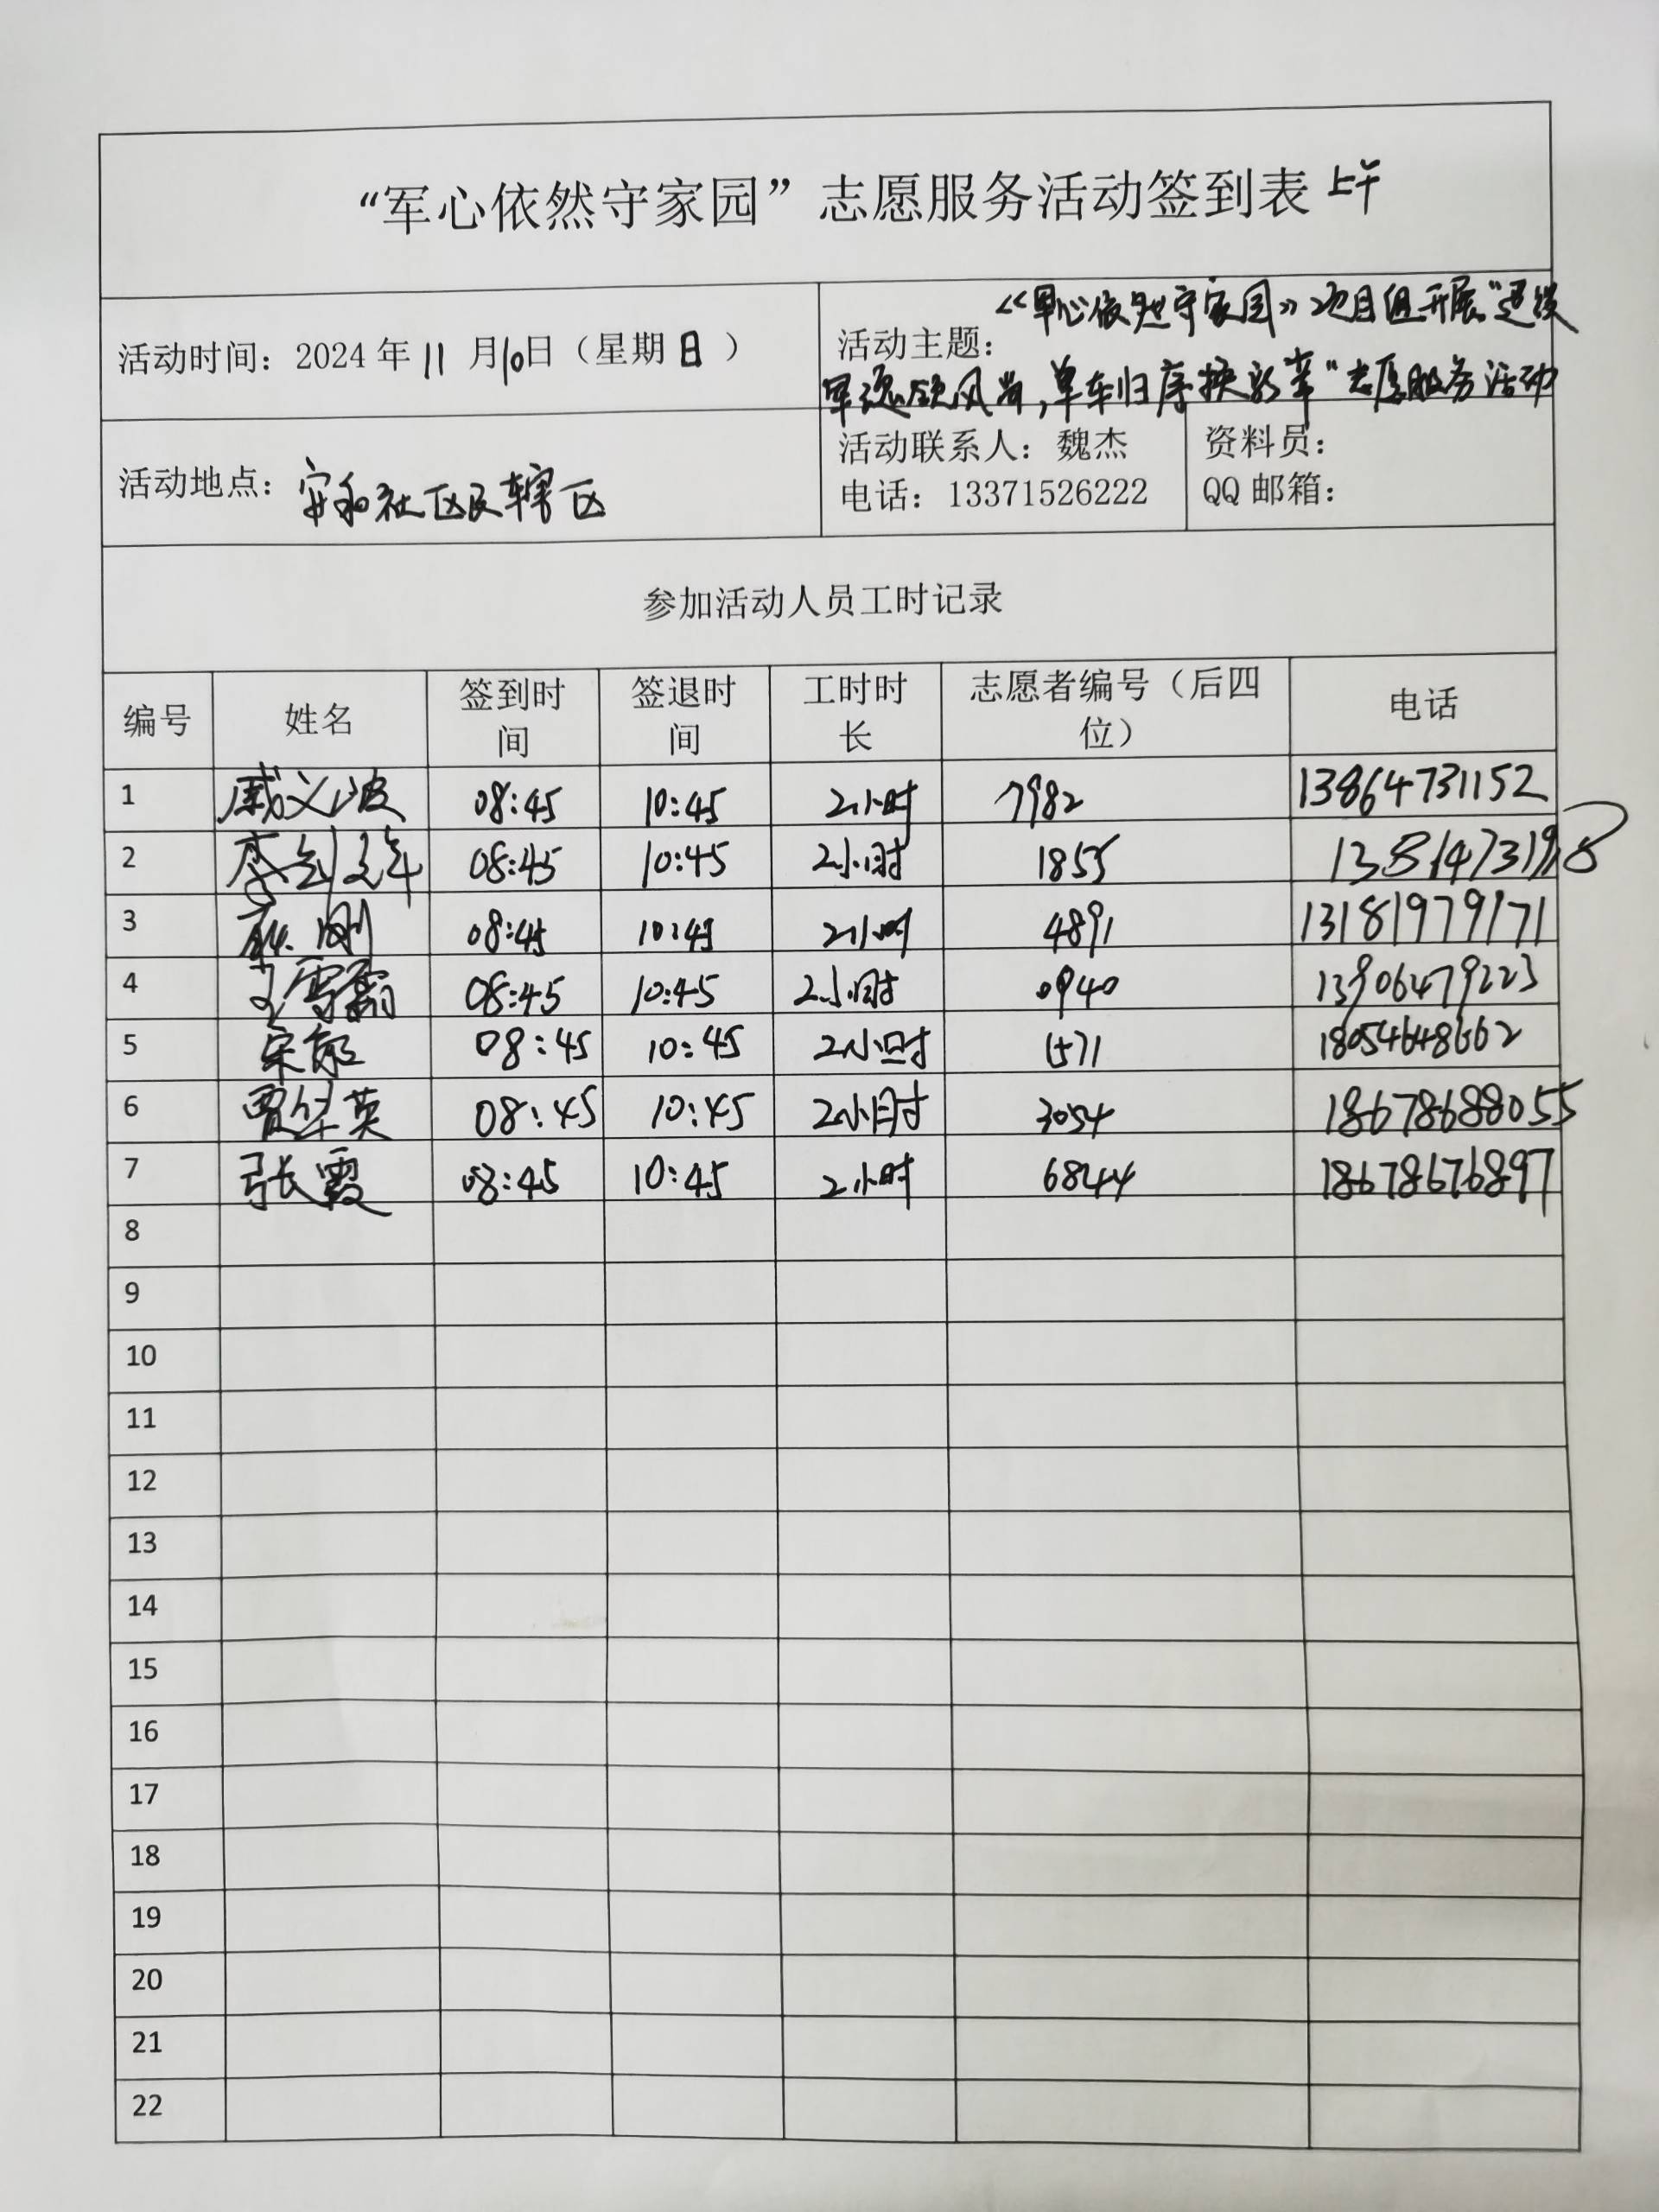 “军心依然守家园”志愿服务活动签到表 上午
活动时间：2024年11月10日（星期日）
活动主题：《军心依然守家园》项目组开展“退役
军人领风尚，单车归序换新章”志愿服务活动
活动地点：安和社区及辖区
活动联系人：魏杰
电话：13371526222
资料员：
QQ邮箱：
参加活动人员工时记录
编号 姓名 签到时间 签退时间 工时时长 志愿者编号（后四位） 电话
1 戚义波 08:45 10:45 2小时 7982 13864731152
2 08:45 10:45 2小时 1855
3 刚 08:45 10:45 2小时 4891 13181979171
4 王雪 08:45 10:45 2小时 0940 13906479223
5 宋 08:45 10:45 2小时 1571 18054648662
6 贾华英 08:45 10:45 2小时 3054 18678688055
7 张霞 08:45 10:45 2小时 6844 18678676897
8
9
10
11
12
13
14
15
16
17
18
19
20
21
22